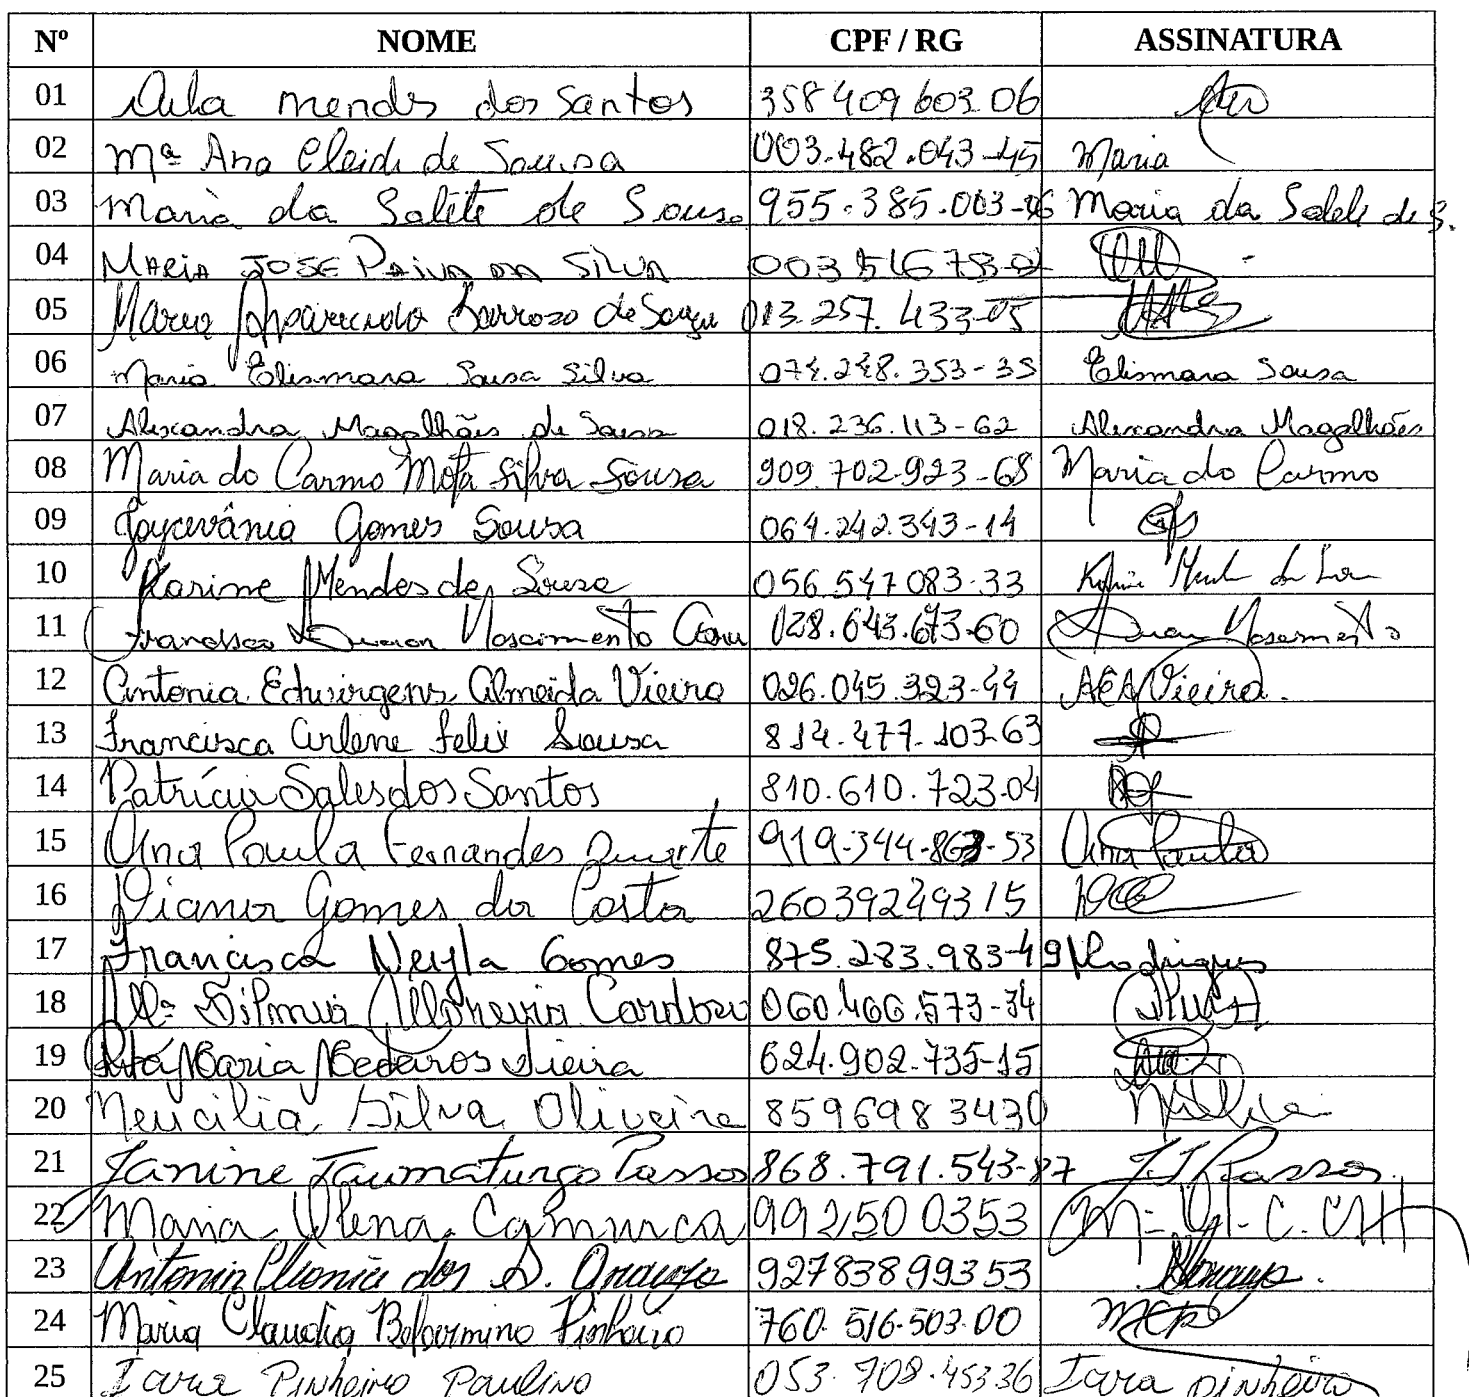 Nº NOME CPF / RG ASSINATURA
01 mendes dos Santos 358 409 603 06
02 Mª Ana Cleide de Sousa 003.482.043-45 Maria
03 Maria da Salete de Sousa 955.385.003-06 Maria da Salete de S.
04 MARIA JOSE PAIVA DA SILVA
05 Maria Aparecida Barroso de Souza 013.257.433-05
06 Maria Elismara Sousa Silva 074.248.353-35 Elismara Sousa
07 Alexandra Magalhães de Sousa 018.236.113-62 Alexandra Magalhães
08 Maria do Carmo Mota Silva Sousa 909.702.923-68 Maria do Carmo
09 Joycevânia Gomes Sousa 064.242.343-14
10 Karine Mendes de Sousa 056.547 083-33
11 Nascimento 028.643.673-60 Nascimento
12 Antonia Edwirgens Almeida Vieira 026.045.323-44 AEAVieira.
13 Francisca Arlene Felix Sousa 814.477.103-63
14 Patrícia Sales dos Santos 810.610.723-04
15 Ana Paula Fernandes Duarte 919.344.863-53 Ana Paula
16 Gomes da Costa 26039249315
17 Francisca Neyla Gomes 875.283.983-49 Rodrigues
18 Mª Silmia Cardoso 060.466.573-34
19 Rita Maria Medeiros Vieira 624.902.735-15
20 Neucilia Silva Oliveira 8596983430
21 Janine Taumaturgo Passos 868.791.543-87 J T Passos.
22 Maria Camurca 9925000353
23 Antonia Cleonia dos S. Araujo 92783899353
24 Maria Claudia Belarmino Pinheiro 760.516.503-00
25 Iara Pinheiro Paulino 053.708.453 36 Iara Pinheiro